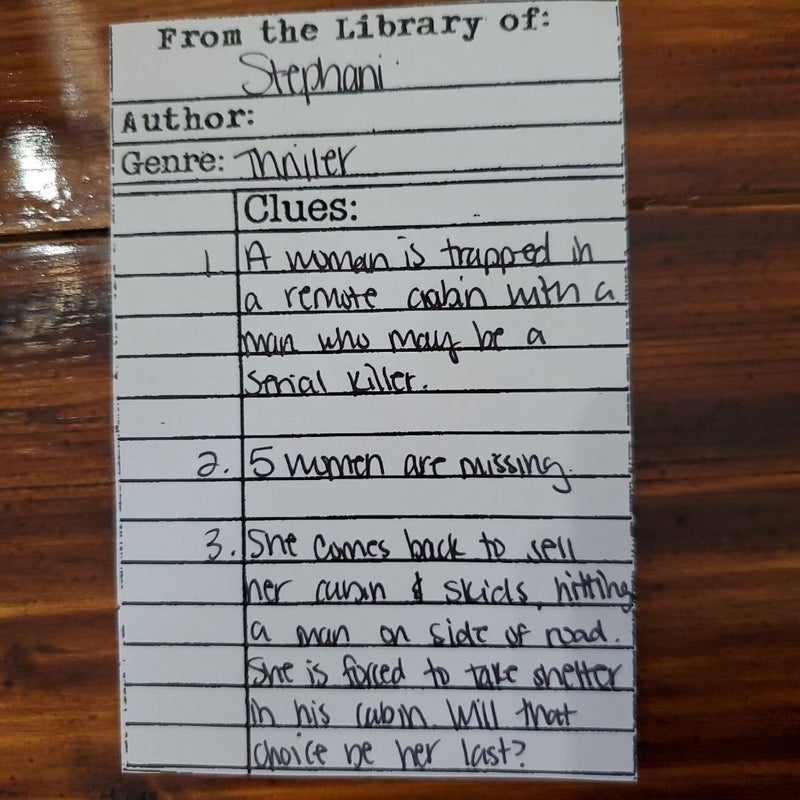 From the Library of:
Stephani
Author:
Genre: Thriller
Clues:
1 A woman is trapped in
a remote cabin with a
man who may be a
serial killer.
2. 5 women are missing.
3. She comes back to sell
her cabin & skids, hitting
a man on side of road.
She is forced to take shelter
in his cabin. Will that
choice be her last?